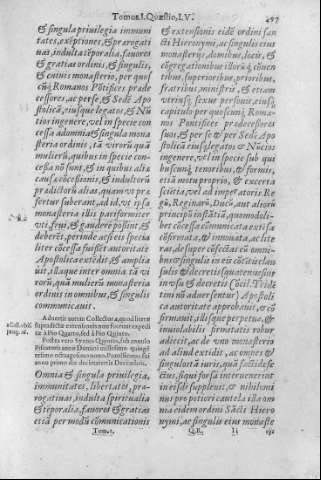 Tomus.I.Quæstio.LV. 497
& singula priuilegia immuni
tates, exẽptiones, & prærogati
uas, indulta, tẽporalia, fauores
& gratias ordini, & singulis,
& cuiuis monasterio, per quos
cũq; Romanos Põtifices præde
cessores, ac per se, & Sedẽ Apo
stolicã, eiusque legatos, & Nũ
tios ingenere, vel in specie con
cessa ad omnia & singula mona
steria ordinis, tã virorũ quã
mulierũ, quibus in specie con
cessa nõ sunt, & in quibus alia
causæ cõcessionis, & indultorũ
prædictorũ alias, quam vt præ
fertur suberant, ad id, vt ipsa
monasteria illis pariformiter
vti, frui, & gaudere possint &
deberẽt, perinde ac si eis specia
liter cõcessa fuissẽt autoritate
Apostolica extẽdit & amplia
uit, ita que inter omnia tã vi
rorũ, quã mulierũ monasteria
ordinis in omnibus, & singulis
communicauit.
Aduertit autem Collector, quod literæ
suprascriptæ extensionis non fuerunt expedi
tæ à Pio Quarto, sed à Pio Quinto.
Postea vero Sixtus Quintus, sub annulo
Piscatoris anno Domini millesimo quingẽ
tesimo octuagesimo nono, Pontificatus sui
anno primo die decimatertia Decembris.
Omnia & singula priuilegia,
immunitates, libertates, præ-
rogatiuas, indulta, spiritualia
& tẽporalia, fauores & gratias
etiã per modũ cõmunicationis
Tom.1.
& extensionis eidẽ ordini san
cti Hieronymi, ac singulis eius
monasterijs, domibus, locis, &
cõgregationibus illorũq; cõuẽ
tibus, superioribus, prioribus,
fratribus, ministris, & etiam
vtriusq; sexus personis, eiusq;
capitulo per quoscunq; Roma-
nos Pontifices prædecessores
suos, & per se & per Sedẽ Apo
stolicã eiusq; legatos & Nũcios
ingenere, vel in specie sub qui
buscunq; tenoribus, & formis,
etiã motu proprio, & ex certa
sciẽtia, vel ad imperatoris Re
gũ, Reginarũ, Ducũ, aut aliorũ
principũ instãtiã, quomodoli-
bet cõcessa cõmunicata extẽsa
cõfirmata, & innouata, ac lite
ras, desuper cõfectas cũ omnib⁹
& singulis in eis cõtẽtis clau
sulis & decretis (quatenus sint
in vsu & decretis Cõcil. Tridẽ
tini nõ aduersentur) Apostoli
ca autoritate approbauit, & con
firmauit, illisque perpetuæ, &
inuiolabilis firmitatis robur
adiecit, ac de vno monasterio
ad aliud extẽdit, ac omnes &
singulos tã iuris, quã facti defe
ctus, si qui forsã interuenerint
in eisdẽ suppleuit, & nihilomi
nus pro potiori cautela illa om
nia eidem ordini Sãcti Hiero
nymi, ac singulis eius monaste
Q.R. Ii rijs